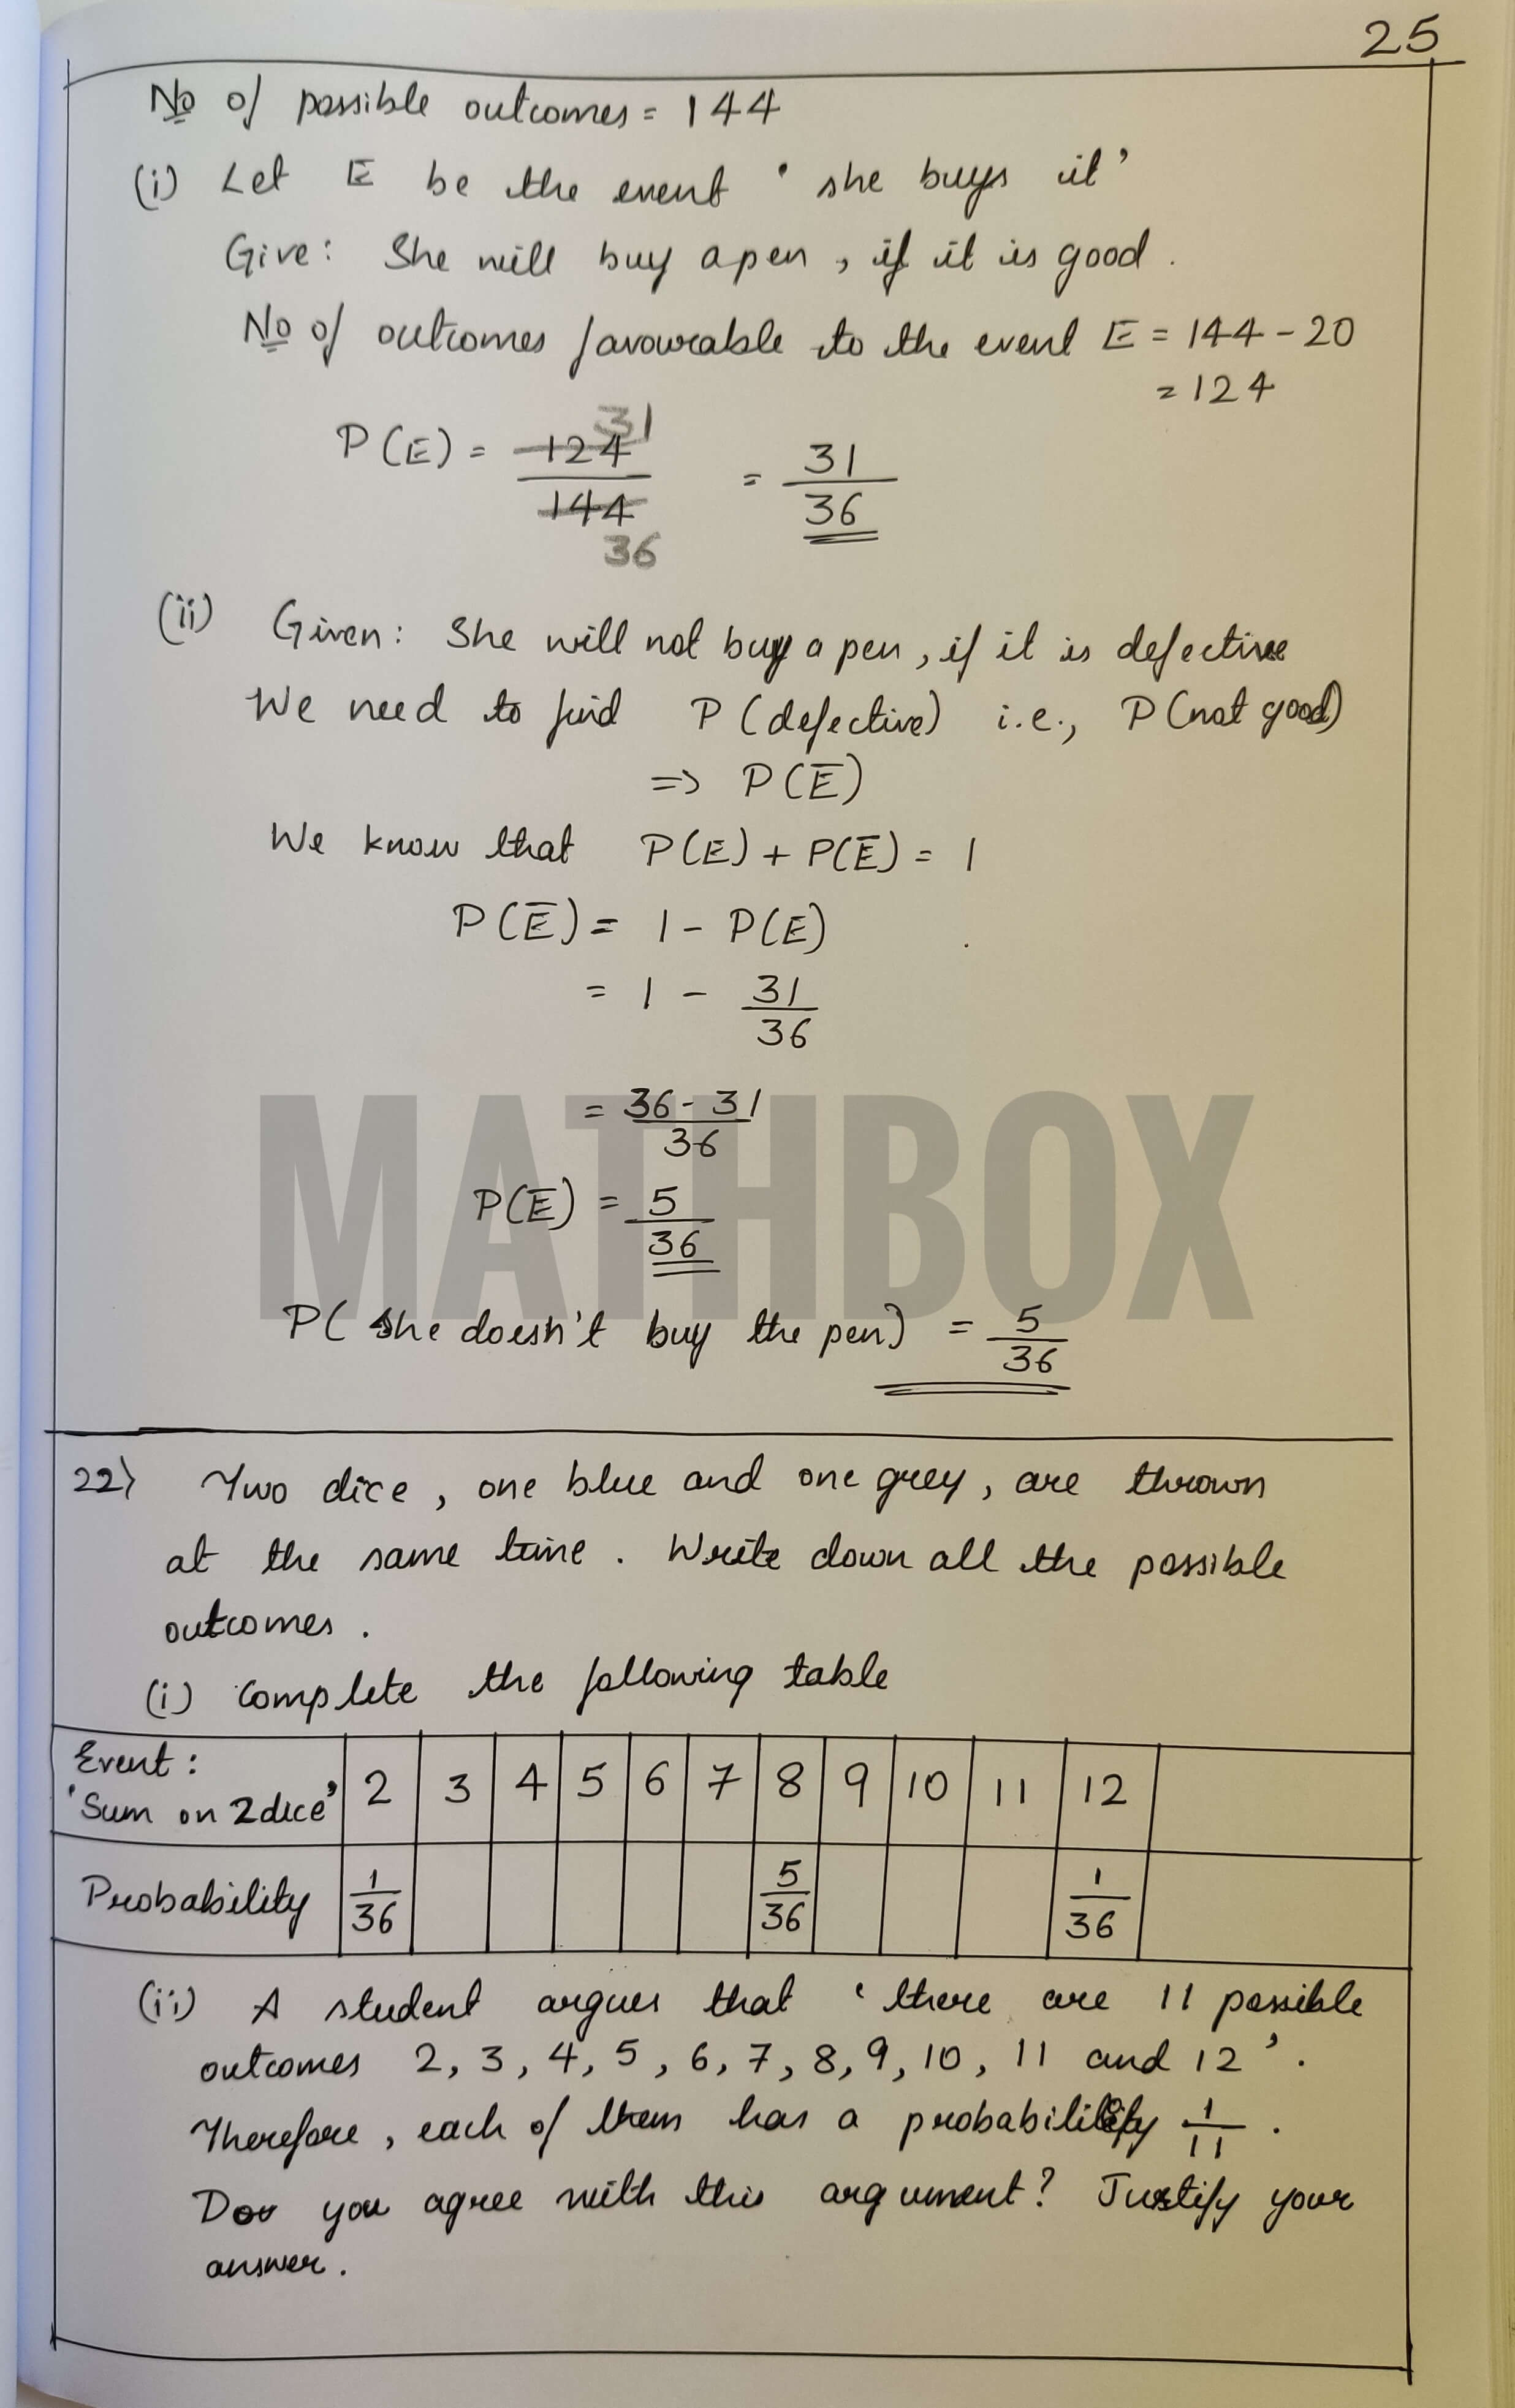 25
No of possible outcomes = 144
(i) Let E be the event ' she buys it'
Give: She will buy a pen, if it is good.
No of outcomes favourable to the event E = 144 - 20
= 124
31
P(E) = 124/144 = 31/36
36
(ii) Given: She will not buy a pen, if it is defective
We need to find P(defective) i.e., P(not good)
=> P(Ē)
We know that P(E) + P(Ē) = 1
P(Ē) = 1 - P(E)
= 1 - 31/36
= 36 - 31/36
P(Ē) = 5/36
MATHBOX
P( she doesn't buy the pen) = 5/36
22) Two dice, one blue and one grey, are thrown
at the same time. Write down all the possible
outcomes.
(i) Complete the following table
Event: 'Sum on 2 dice' 2 3 4 5 6 7 8 9 10 11 12
Probability 1/36 5/36 1/36
(ii) A student argues that 'there are 11 possible
outcomes 2, 3, 4, 5, 6, 7, 8, 9, 10, 11 and 12'.
Therefore, each of them has a probability 1/11.
Do you agree with this argument? Justify your
answer.